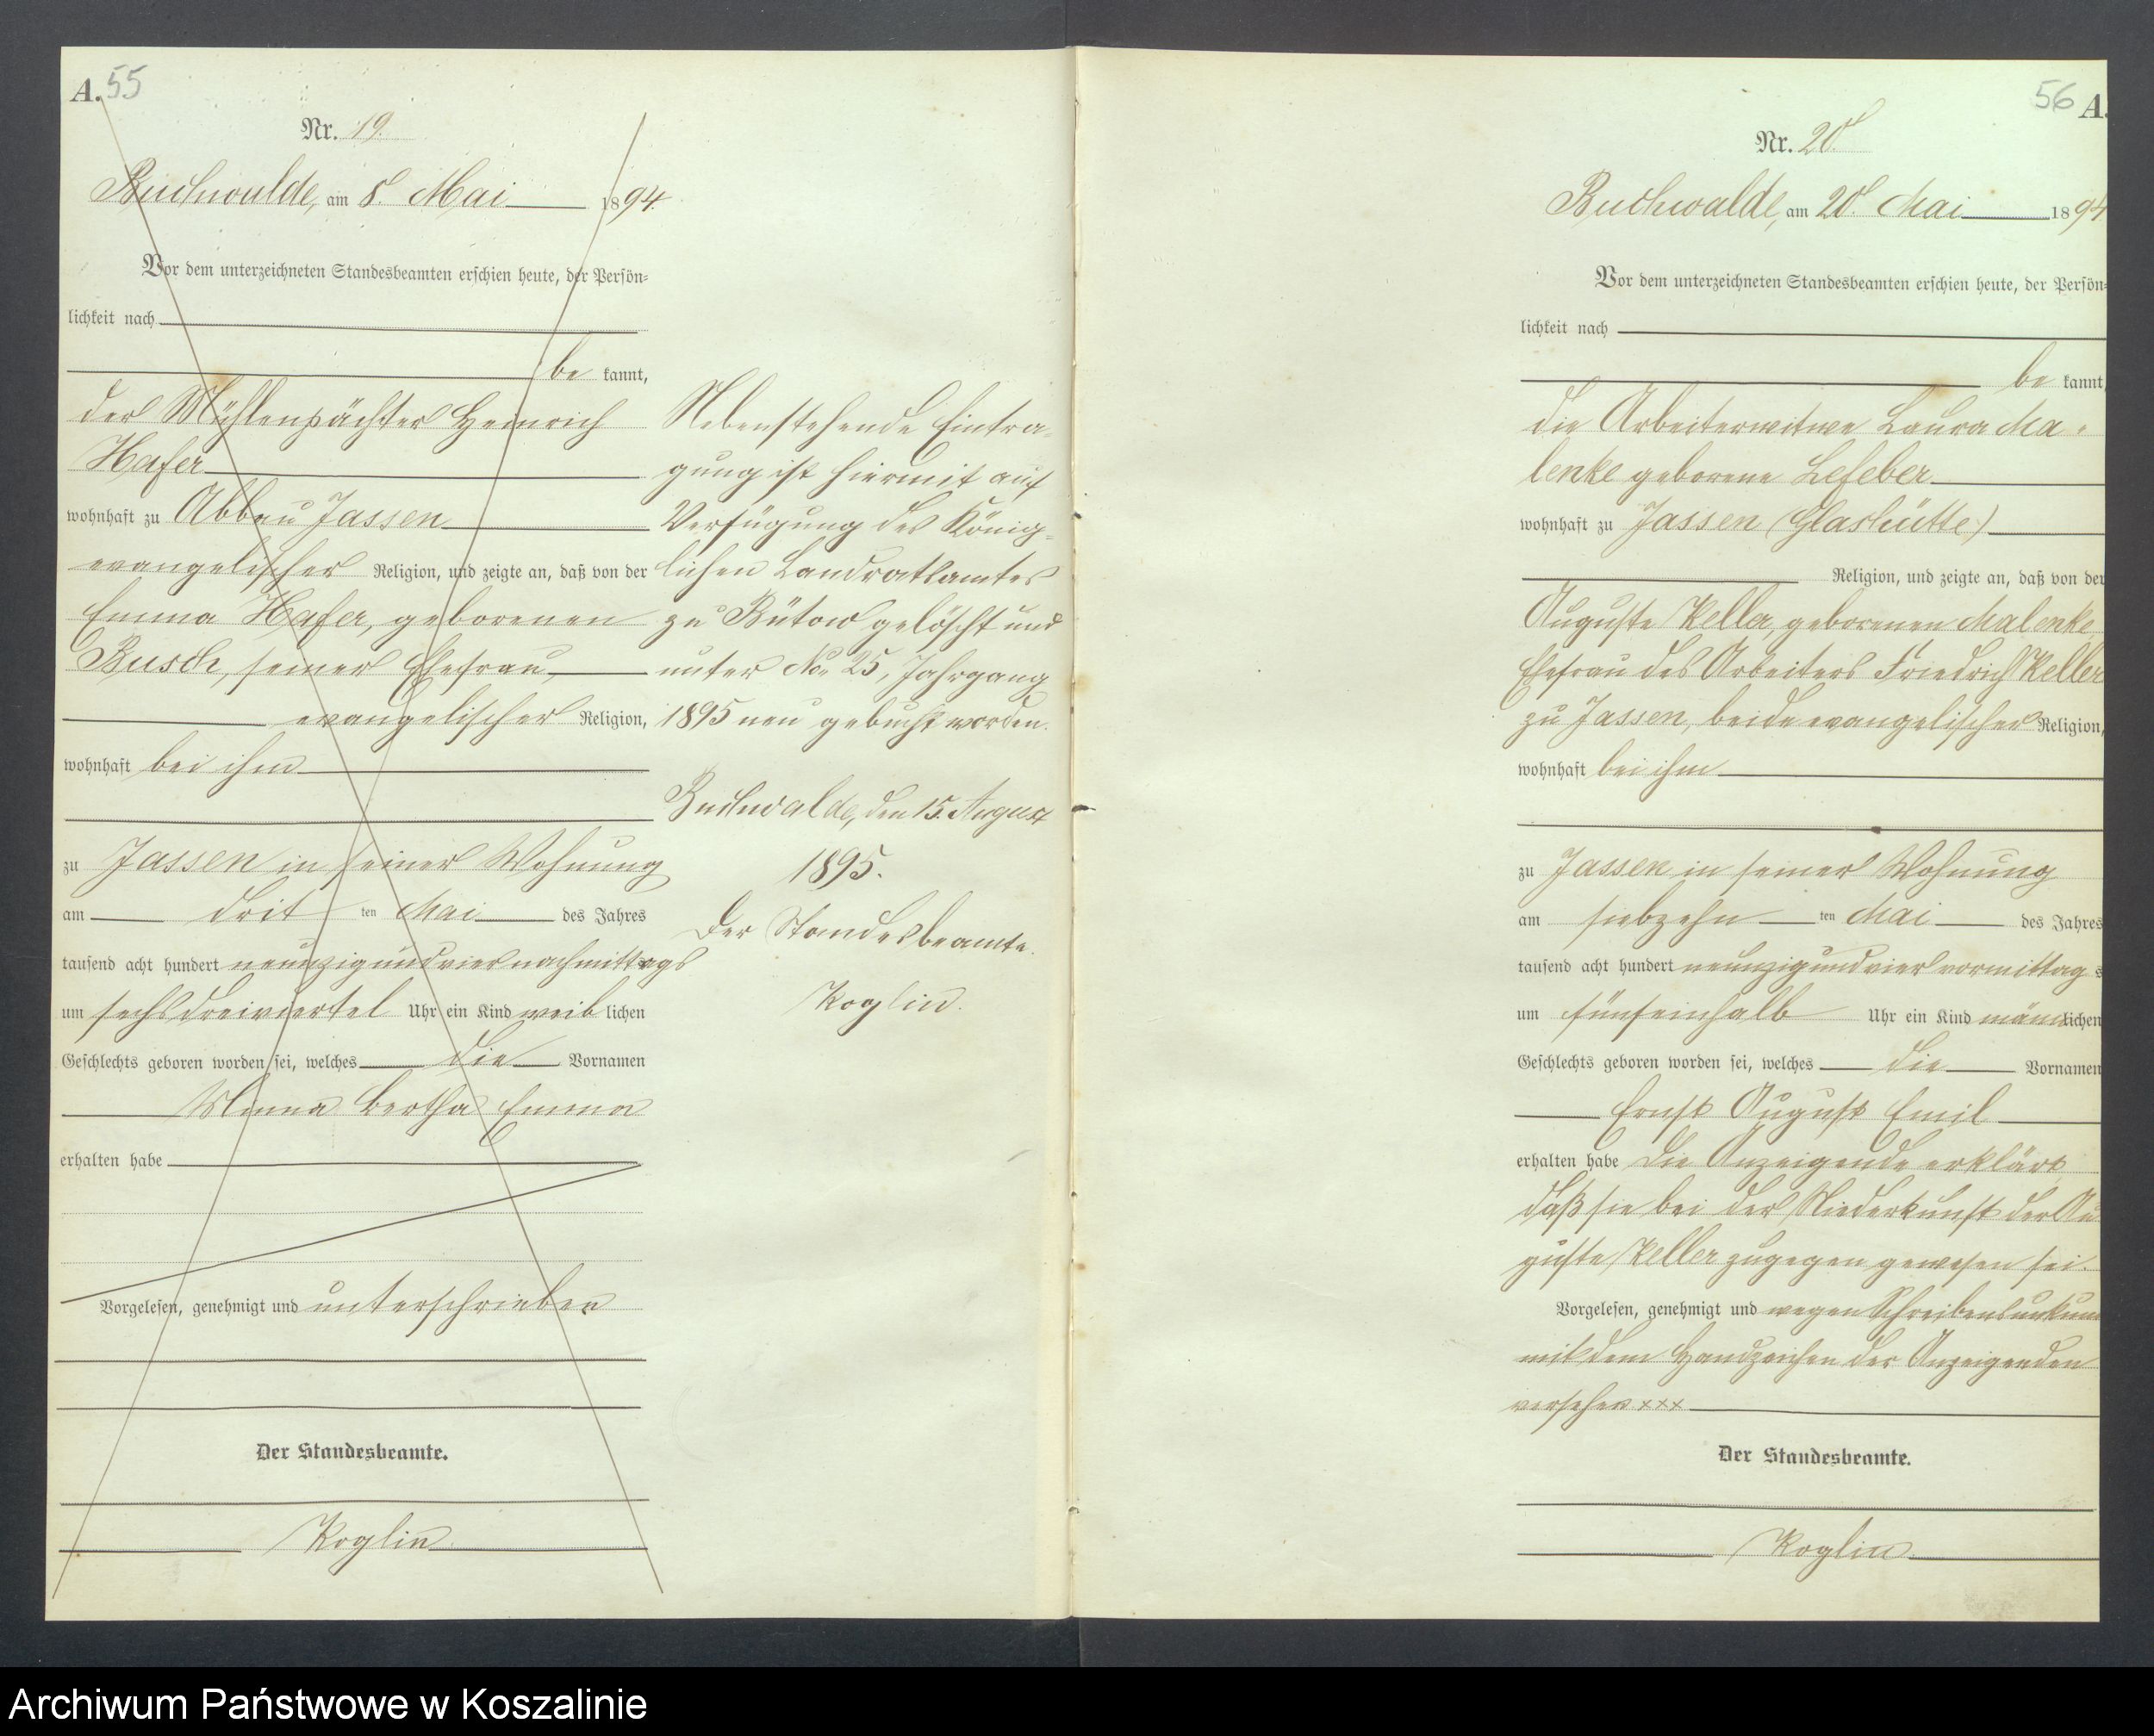 A. 55
Nr. 19.
Buchwalde, am 8. Mai 1894.
Vor dem unterzeichneten Standesbeamten erschien heute, der Persön-
lichkeit nach
be kannt,
der Mühlenpächter Heinrich
Hafer
wohnhaft zu Abbau Jassen
evangelischer Religion, und zeigte an, daß von der
Emma Hafer, geborenen
Busch, seiner Ehefrau,
evangelischer Religion,
wohnhaft bei ihm
zu Jassen in seiner Wohnung
am drit ten Mai des Jahres
tausend acht hundert neunzig und vier nachmittags
um sechs dreiviertel Uhr ein Kind weib lichen
Geschlechts geboren worden sei, welches die Vornamen
Minna Bertha Emma
erhalten habe
Vorgelesen, genehmigt und unterschrieben
Der Standesbeamte.
Koglin.
Nebenstehende Eintra-
gung ist hiermit auf
Verfügung des König-
lichen Landratsamtes
zu Bütow gelöscht und
unter No 25, Jahrgang
1895 neu gebucht worden.
Buchwalde, den 15. August
1895.
Der Standesbeamte.
Koglin.
56 A.
Nr. 20.
Buchwalde, am 20. Mai 1894
Vor dem unterzeichneten Standesbeamten erschien heute, der Persön-
lichkeit nach
be kannt,
die Arbeiterwitwe Laura Ma-
lenke geborene Lefeber
wohnhaft zu Jassen (Glashütte)
Religion, und zeigte an, daß von der
Auguste Keller, geborenen Malenke
Ehefrau des Arbeiters Friedrich Keller
zu Jassen, beide evangelischer Religion,
wohnhaft bei ihm
zu Jassen in seiner Wohnung
am siebzehn ten Mai des Jahres
tausend acht hundert neunzig und vier vormittag s
um fünfeinhalb Uhr ein Kind männlichen
Geschlechts geboren worden sei, welches die Vornamen
Ernst August Emil
erhalten habe Die Anzeigende erklärt,
daß sie bei der Niederkunft der Au
guste Keller zugegen gewesen sei.
Vorgelesen, genehmigt und wegen Schreibensunkun
mit dem Handzeichen der Anzeigenden
versehen xxx
Der Standesbeamte.
Koglin.
Archiwum Państwowe w Koszalinie